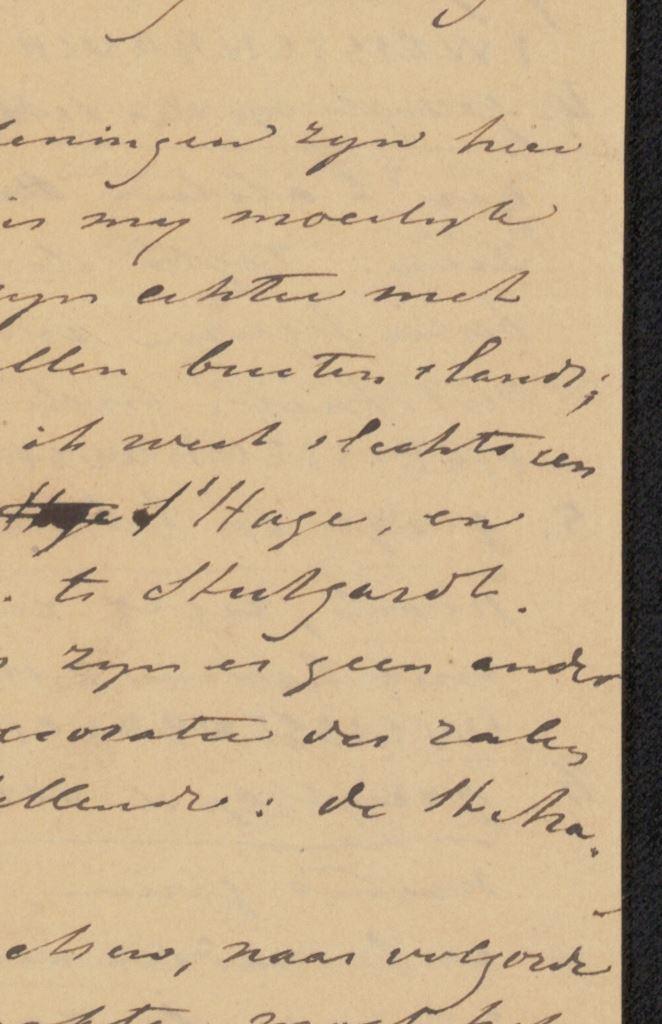 leningen zijn hier
is mij moeilijk
zijn echter met
llen buiten slands;
ik weet slechts een
S'Hage, en
. te Stutgardt.
zijn er geen ander
ecoratie der zalen
ellende: de St
etsen, naar volgorde